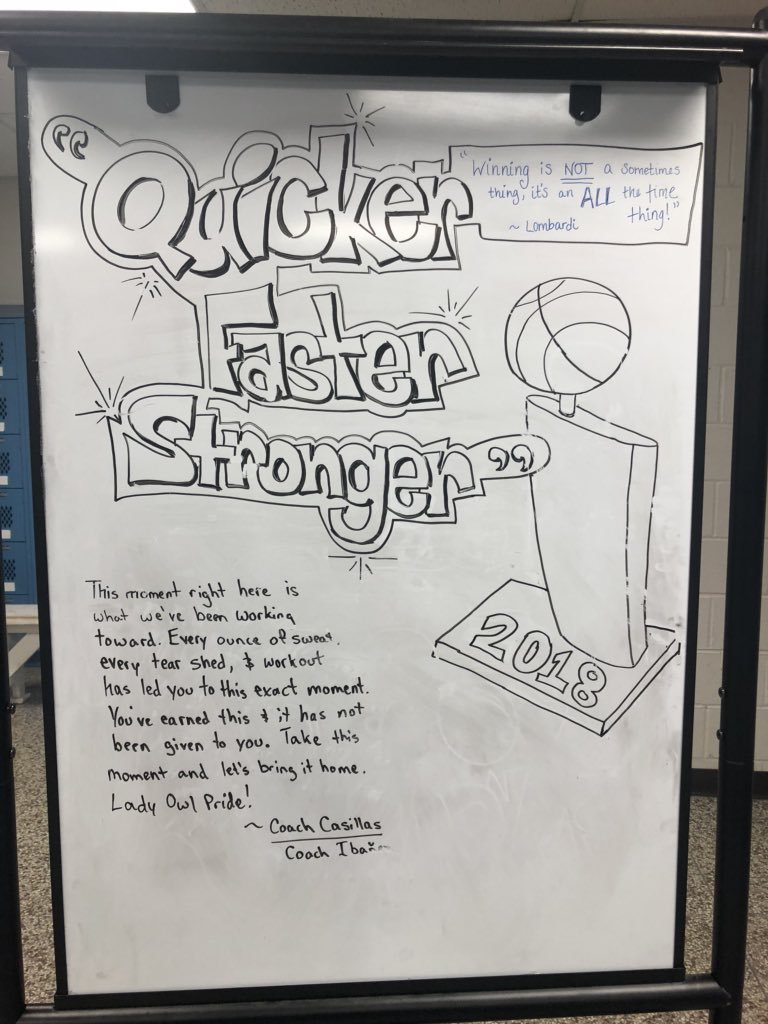 “Quicker
Faster
Stronger”
"Winning is NOT a sometimes
thing, it's an ALL the time
thing!"
~ Lombardi
2018
This moment right here is
what we've been working
toward. Every ounce of sweat,
every tear shed, & workout
has led you to this exact moment.
You've earned this & it has not
been given to you. Take this
moment and let's bring it home.
Lady Owl Pride!
~ Coach Casillas
Coach